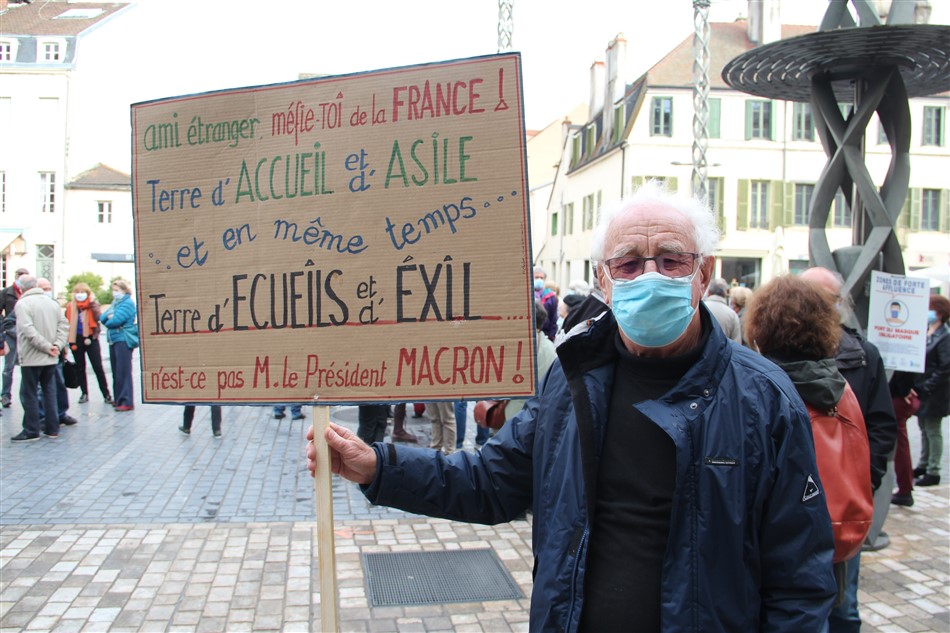 ami étranger, méfie-Toi de la FRANCE !
Terre d'ACCUEIL et d'ASILE
...et en même temps...
Terre d'ECUEILS et d'ÉXIL...
n'est-ce pas M. le Président MACRON !
ZONES DE FORTE
AFFLUENCE
PORT DU MASQUE
OBLIGATOIRE